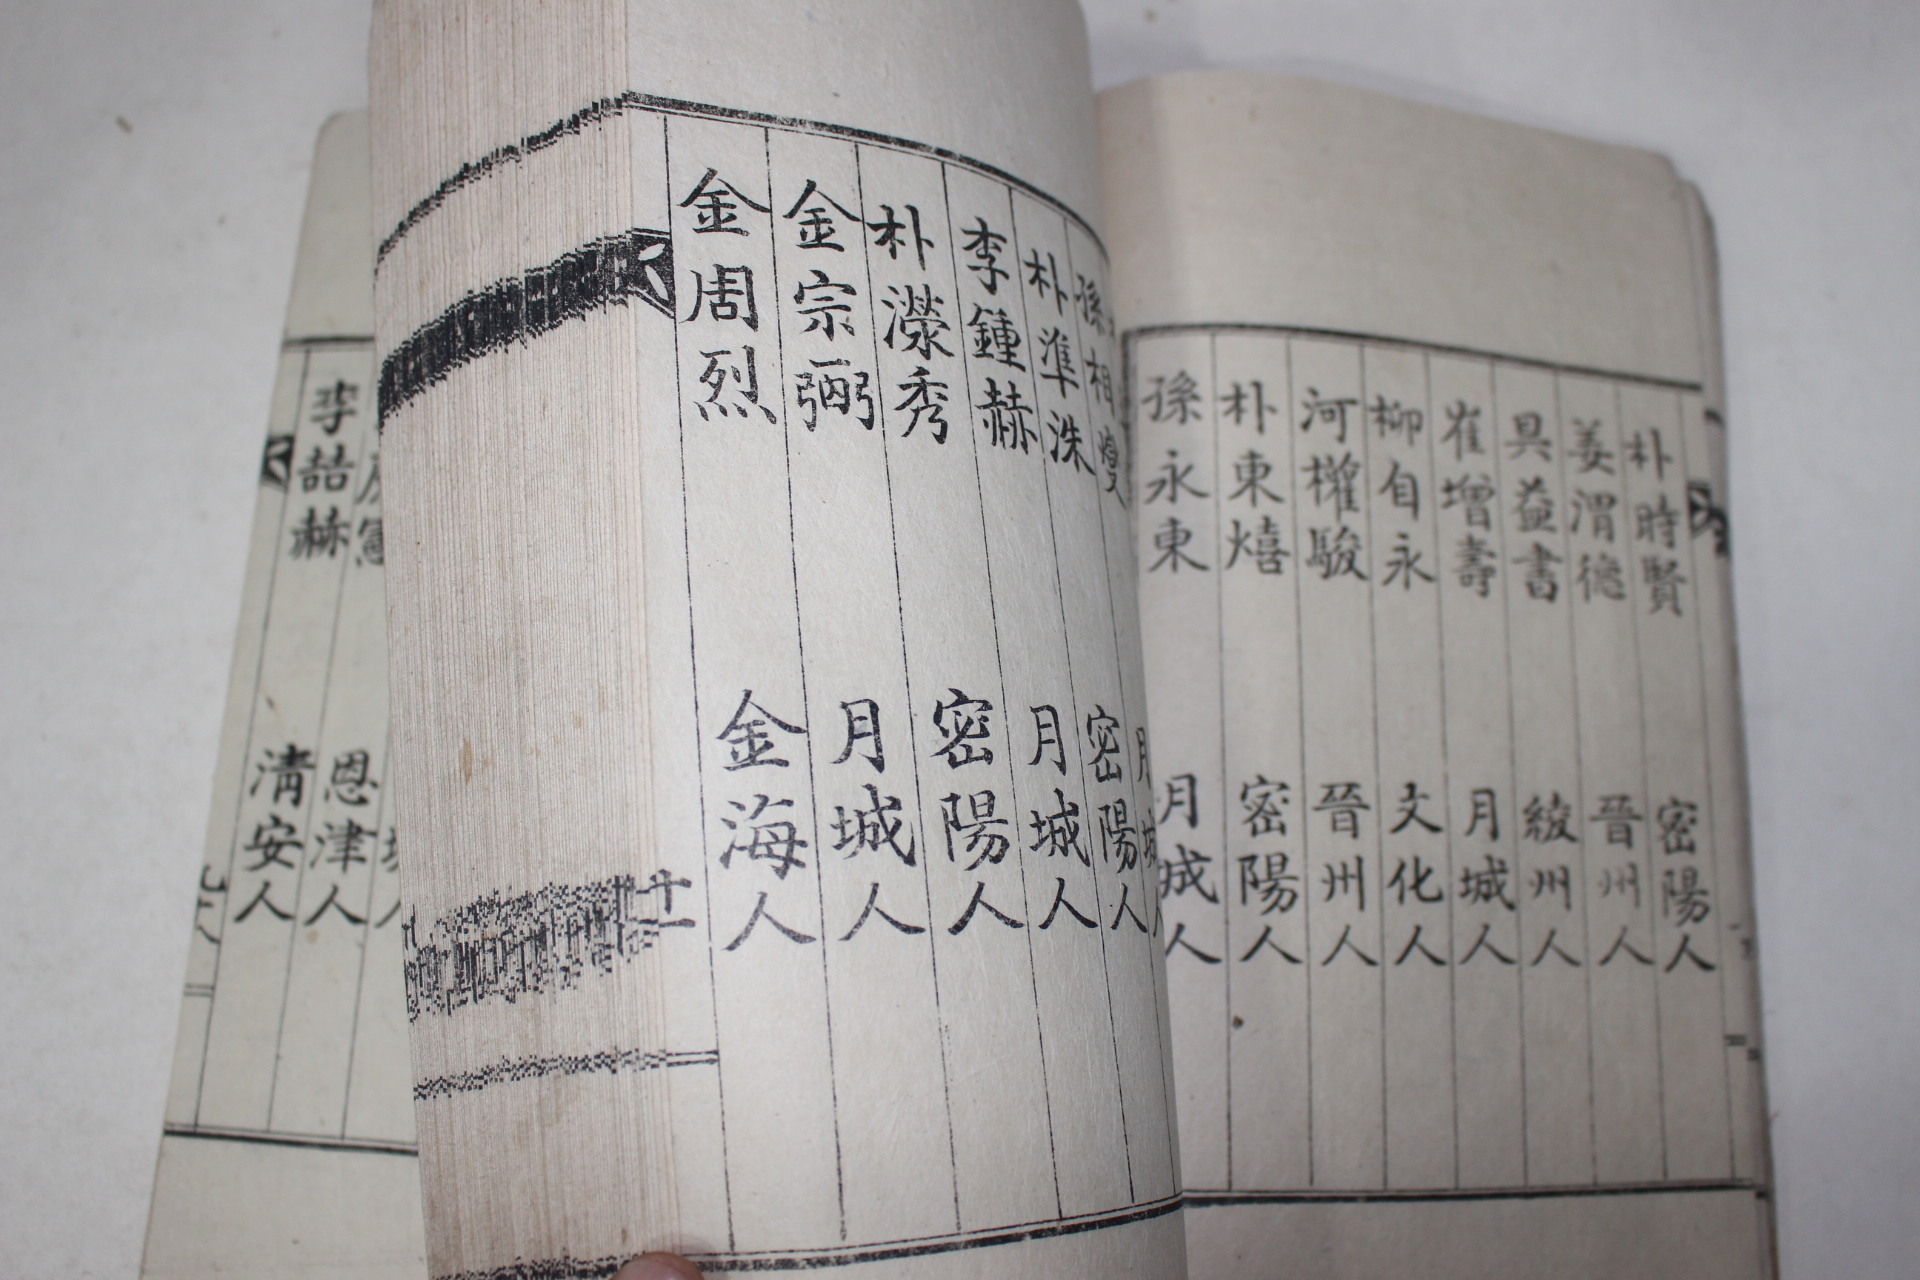 朴時賢 密陽人
姜渭德 晉州人
具益書 綾州人
崔增壽 月城人
柳自永 文化人
河權駿 晉州人
朴東熺 密陽人
孫永東 月城人
孫相燮 月城
朴準洙 密陽人
李鍾赫 月城人
朴濚秀 密陽人
金宗弼 月城人
金周烈 金海人
十一
恩津人
李喆赫 清安人